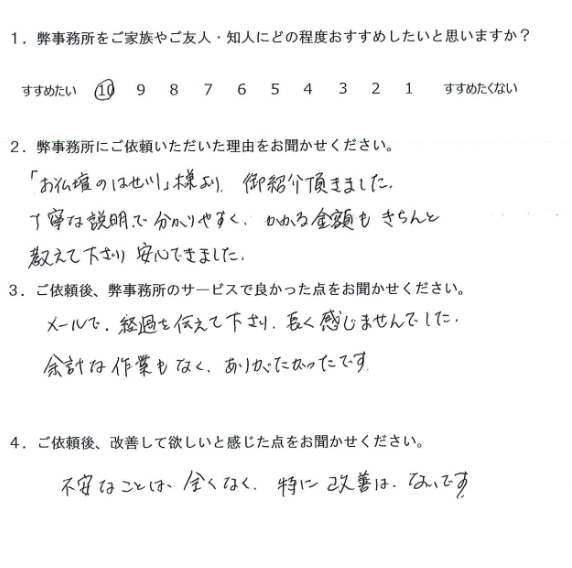 １．弊事務所をご家族やご友人・知人にどの程度おすすめしたいと思いますか？
すすめたい 10 9 8 7 6 5 4 3 2 1 すすめたくない
２．弊事務所にご依頼いただいた理由をお聞かせください。
「お仏壇のはせ川」様より、御紹介頂きました。
丁寧な説明で分かりやすく、かかる金額もきちんと
教えて下さり安心できました。
３．ご依頼後、弊事務所のサービスで良かった点をお聞かせください。
メールで、経過を伝えて下さり、長く感じませんでした。
余計な作業もなく、ありがたかったです。
４．ご依頼後、改善して欲しいと感じた点をお聞かせください。
不安なことは、全くなく、特に改善は、ないです